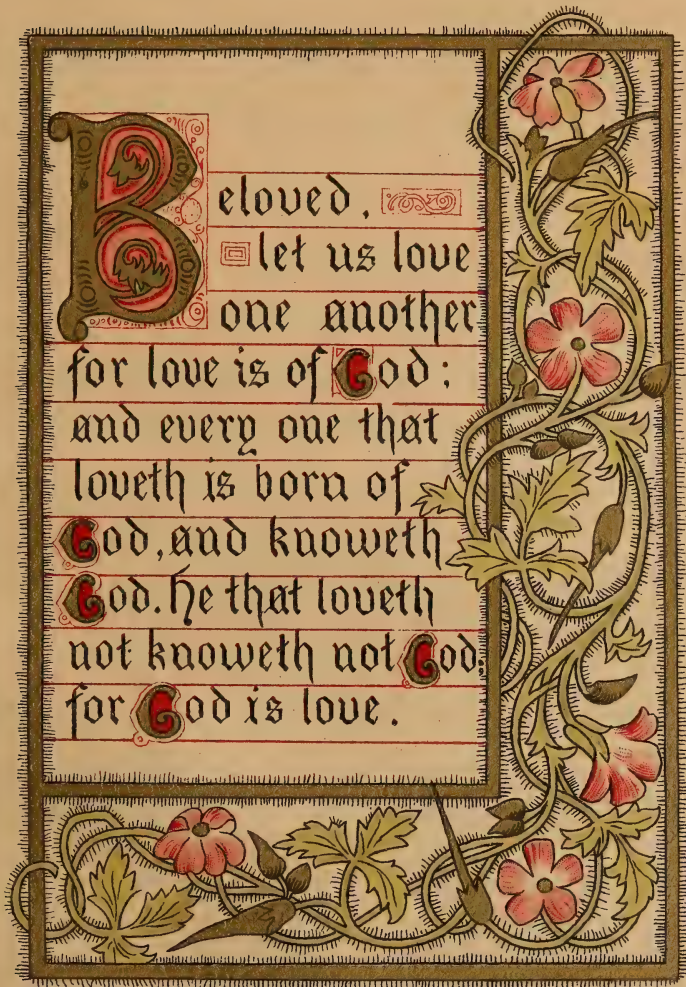 Beloved,
let us love
one another
for love is of God:
and every one that
loveth is born of
God, and knoweth
God. He that loveth
not knoweth not God;
for God is love.